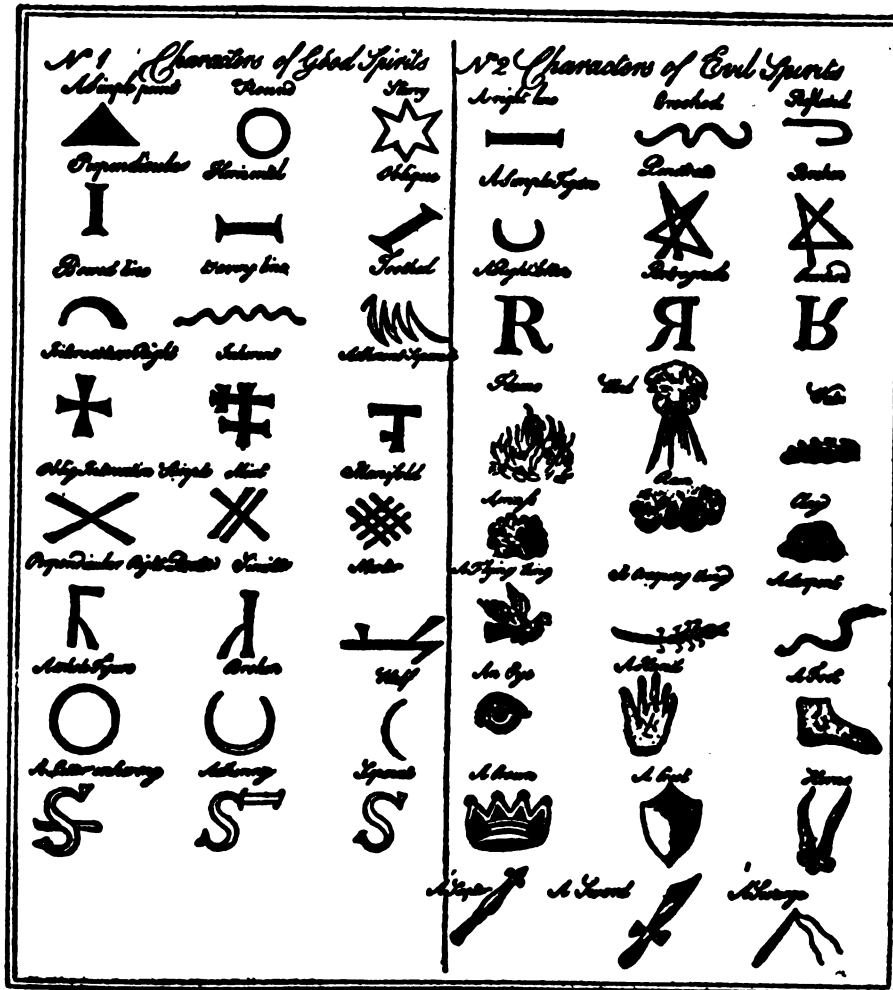 No 1 Characters of Good Spirits
A Simple point Round Starry
Perpendicular Horizontal Oblique
Bowed line Wavey line Toothed
Intersection Right Inherent Adherent Separate
Obliq Intersection Simple Mixt Manifold
Perpendicular Right Dexter Sinister Neuter
A whole Figure Broken Half
A Letter inhering Adhering Separate
No 2 Characters of Evil Spirits
A right line Crooked Reflexed
A Simple Figure Penetrate Broken
A Right letter Retrograde
R R R
Flame Wind Water
A mass Rain Clay
A Flying thing A creeping thing A Serpent
An Eye A Hand A Foot
A Crown A Crest Horns
A Scepter A Sword A Scourge